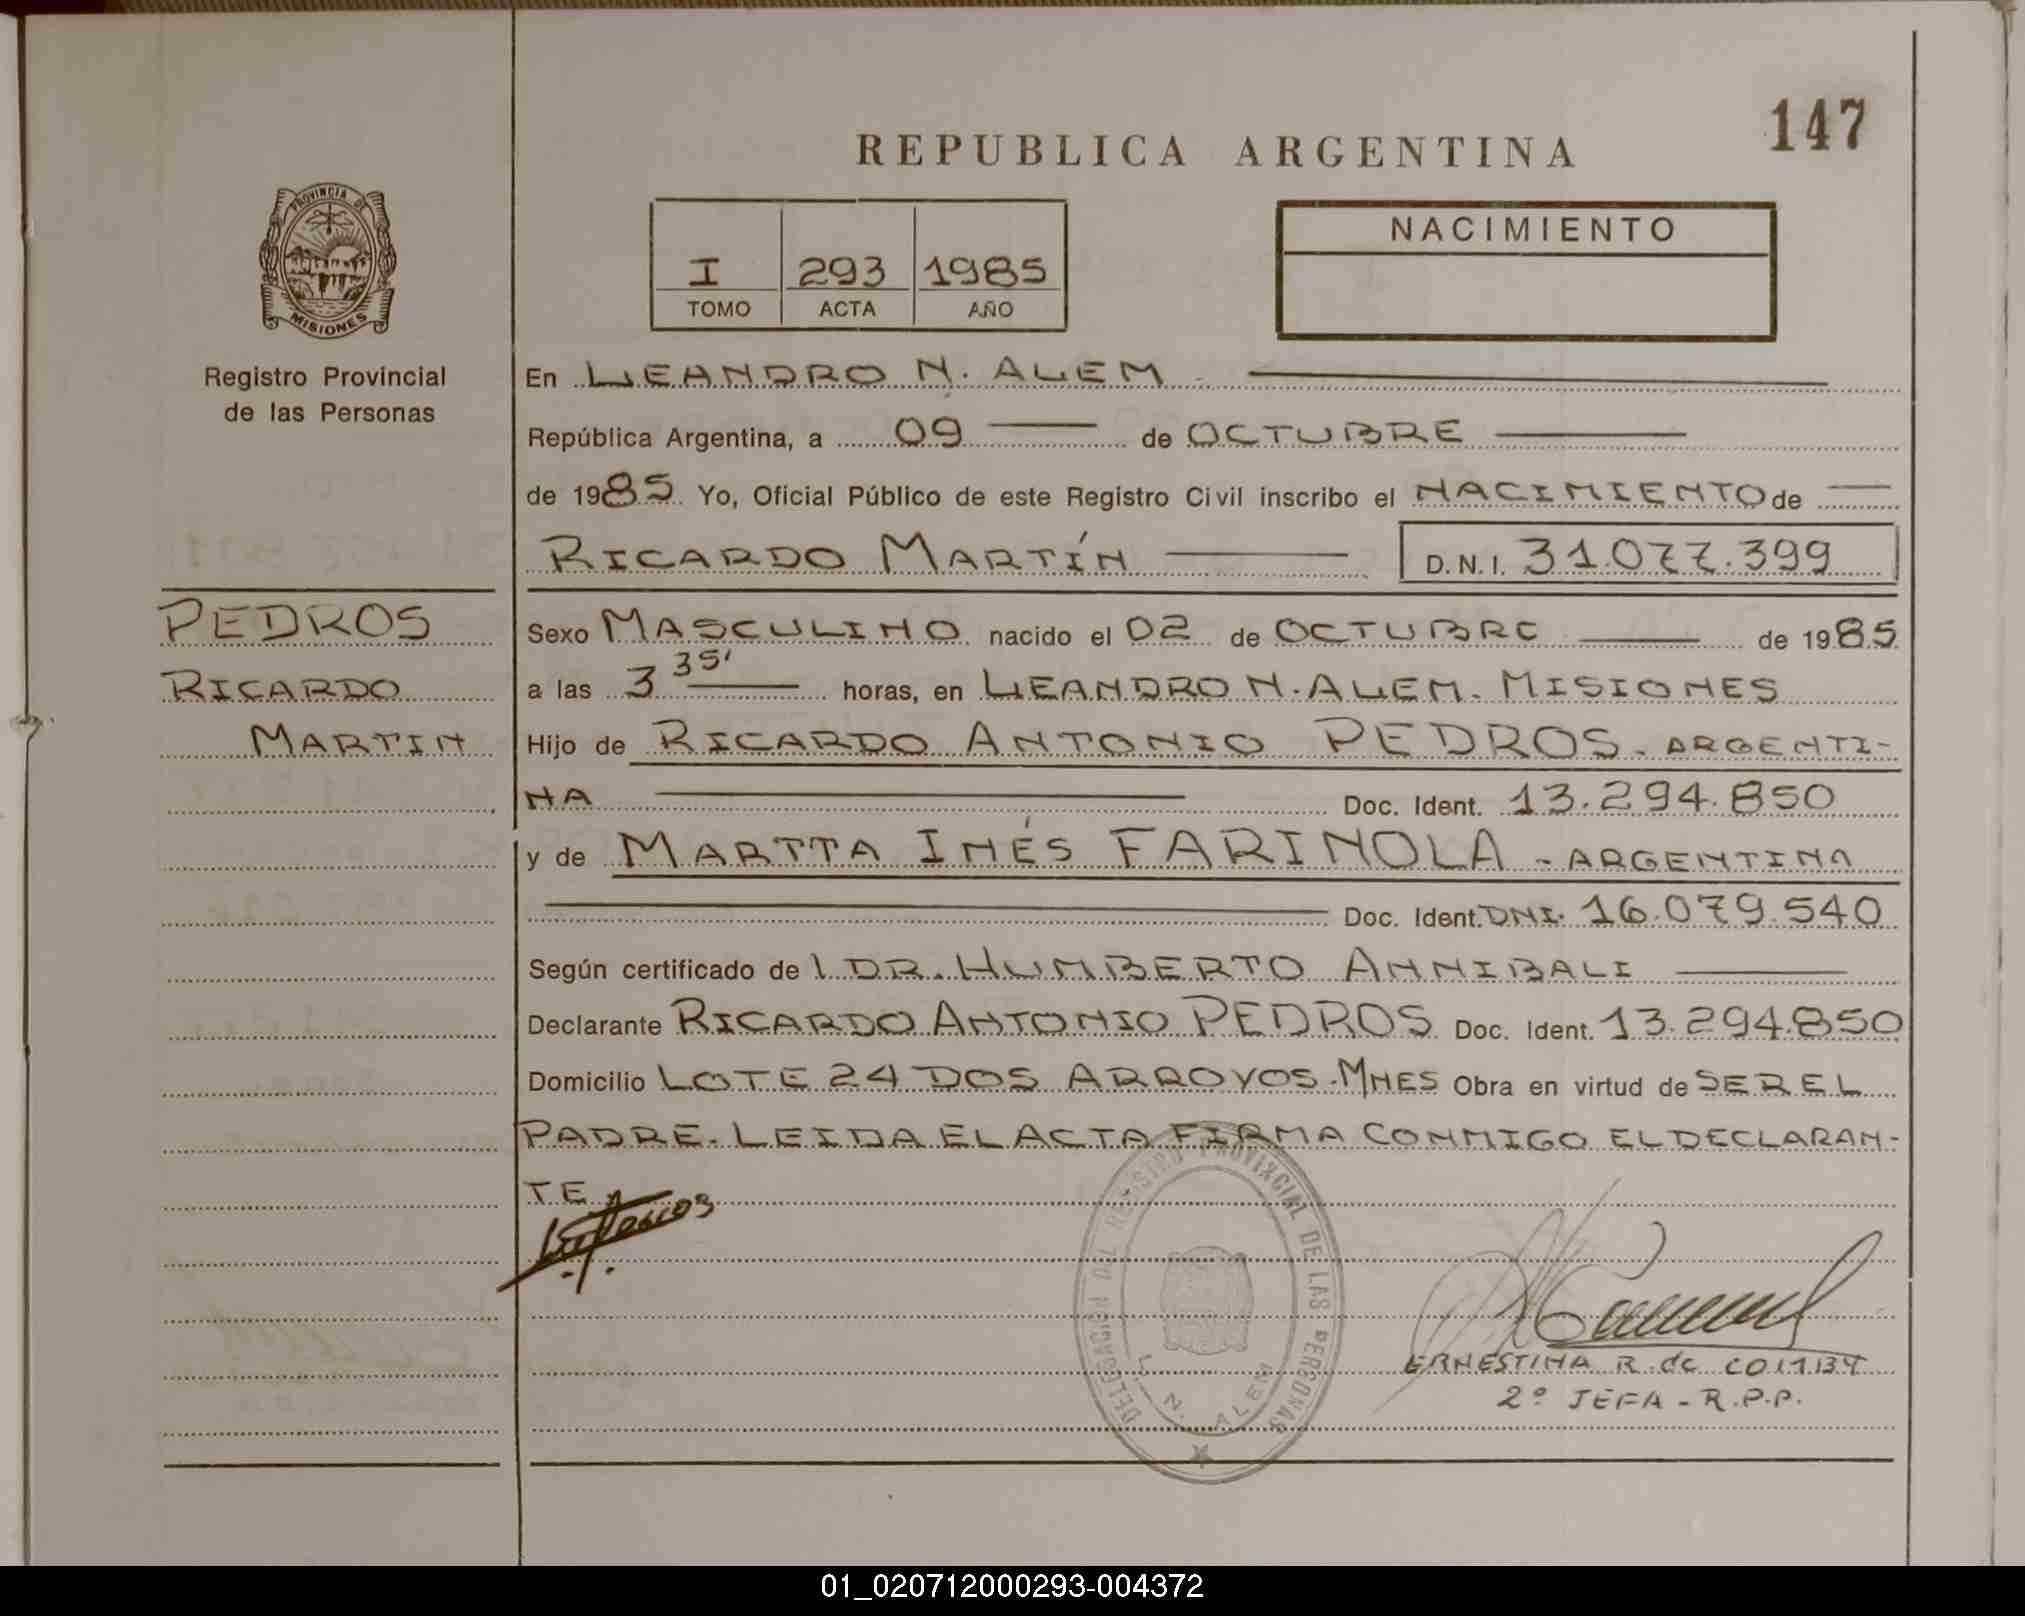 147
REPUBLICA ARGENTINA
PROVINCIA DE
MISIONES
Registro Provincial
de las Personas
I 293 1985
TOMO ACTA AÑO
NACIMIENTO
En LEANDRO N. ALEM
República Argentina, a 09 de OCTUBRE
de 1985 Yo, Oficial Público de este Registro Civil inscribo el NACIMIENTO de
RICARDO MARTÍN D.N.I. 31.077.399
PEDROS
RICARDO
MARTIN
Sexo MASCULINO nacido el 02 de OCTUBRE de 1985
a las 3 35' horas, en LEANDRO N. ALEM. MISIONES
Hijo de RICARDO ANTONIO PEDROS. ARGENTI-
NA Doc. Ident. 13.294.850
y de MARTTA INÉS FARINOLA - ARGENTINA
Doc. Ident. DNI. 16.079.540
Según certificado de l DR. HUMBERTO ANNIBALI
Declarante RICARDO ANTONIO PEDROS Doc. Ident. 13.294.850
Domicilio LOTE 24 DOS ARROYOS. MNES Obra en virtud de SER EL
PADRE. LEIDA EL ACTA FIRMA CONMIGO EL DECLARAN-
TE
DELEGACION DEL REGISTRO PROVINCIAL DE LAS PERSONAS
L. N. ALEM
ERNESTINA R. de
2º JEFA - R.P.P.
01_020712000293-004372